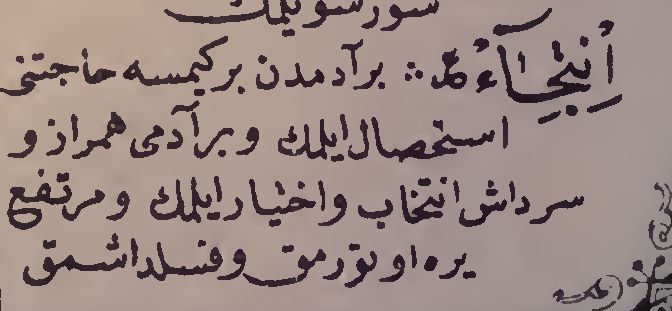 سور سویلمك
إنتجآء عد : برآدمدن بركیمسه حاجتنی
استحصال ایلمك وبرآدمی همراز و
سرداش انتخاب واختیار ایلمك ومرتفع
یره اوتورمق وفسلداشمق